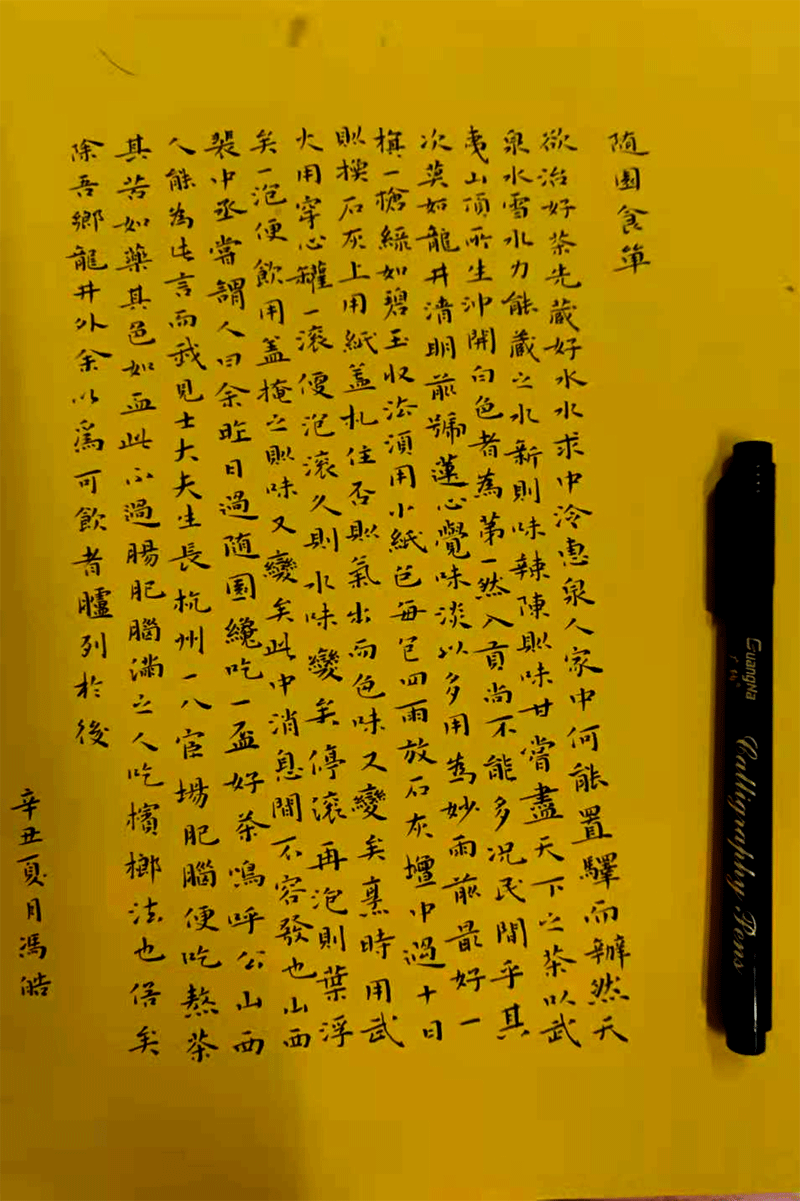 随園食單
欲治好茶先藏好水水求中泠惠泉人家中何能置驛而辦然天
泉水雪水力能藏之水新則味辣陳則味甘嘗盡天下之茶以武
夷山頂所生沖開白色者為第一然入貢尚不能多況民間乎其
次莫如龍井清明前號蓮心覺味淡以多用為妙雨前最好一
旗一槍綠如碧玉收法須用小紙包每包四兩放石灰壇中過十日
則換石灰上用紙蓋札住否則氣出而色味又變矣烹時用武
火用穿心罐一滾便泡滾久則水味變矣停滾再泡則葉浮
矣一泡便飲用蓋掩之則味又變矣此中消息間不容發也山西
裴中丞嘗謂人曰余昨日過随園纔吃一盃好茶嗚呼公山西
人能為此言而我見士大夫生長杭州一入宦場肥腦便吃熬茶
其苦如藥其色如血此不過腸肥腦滿之人吃檳榔法也俗矣
除吾鄉龍井外余以爲可飲者臚列於後
辛丑夏月馮皓
GuangNa
Calligraphy Pens